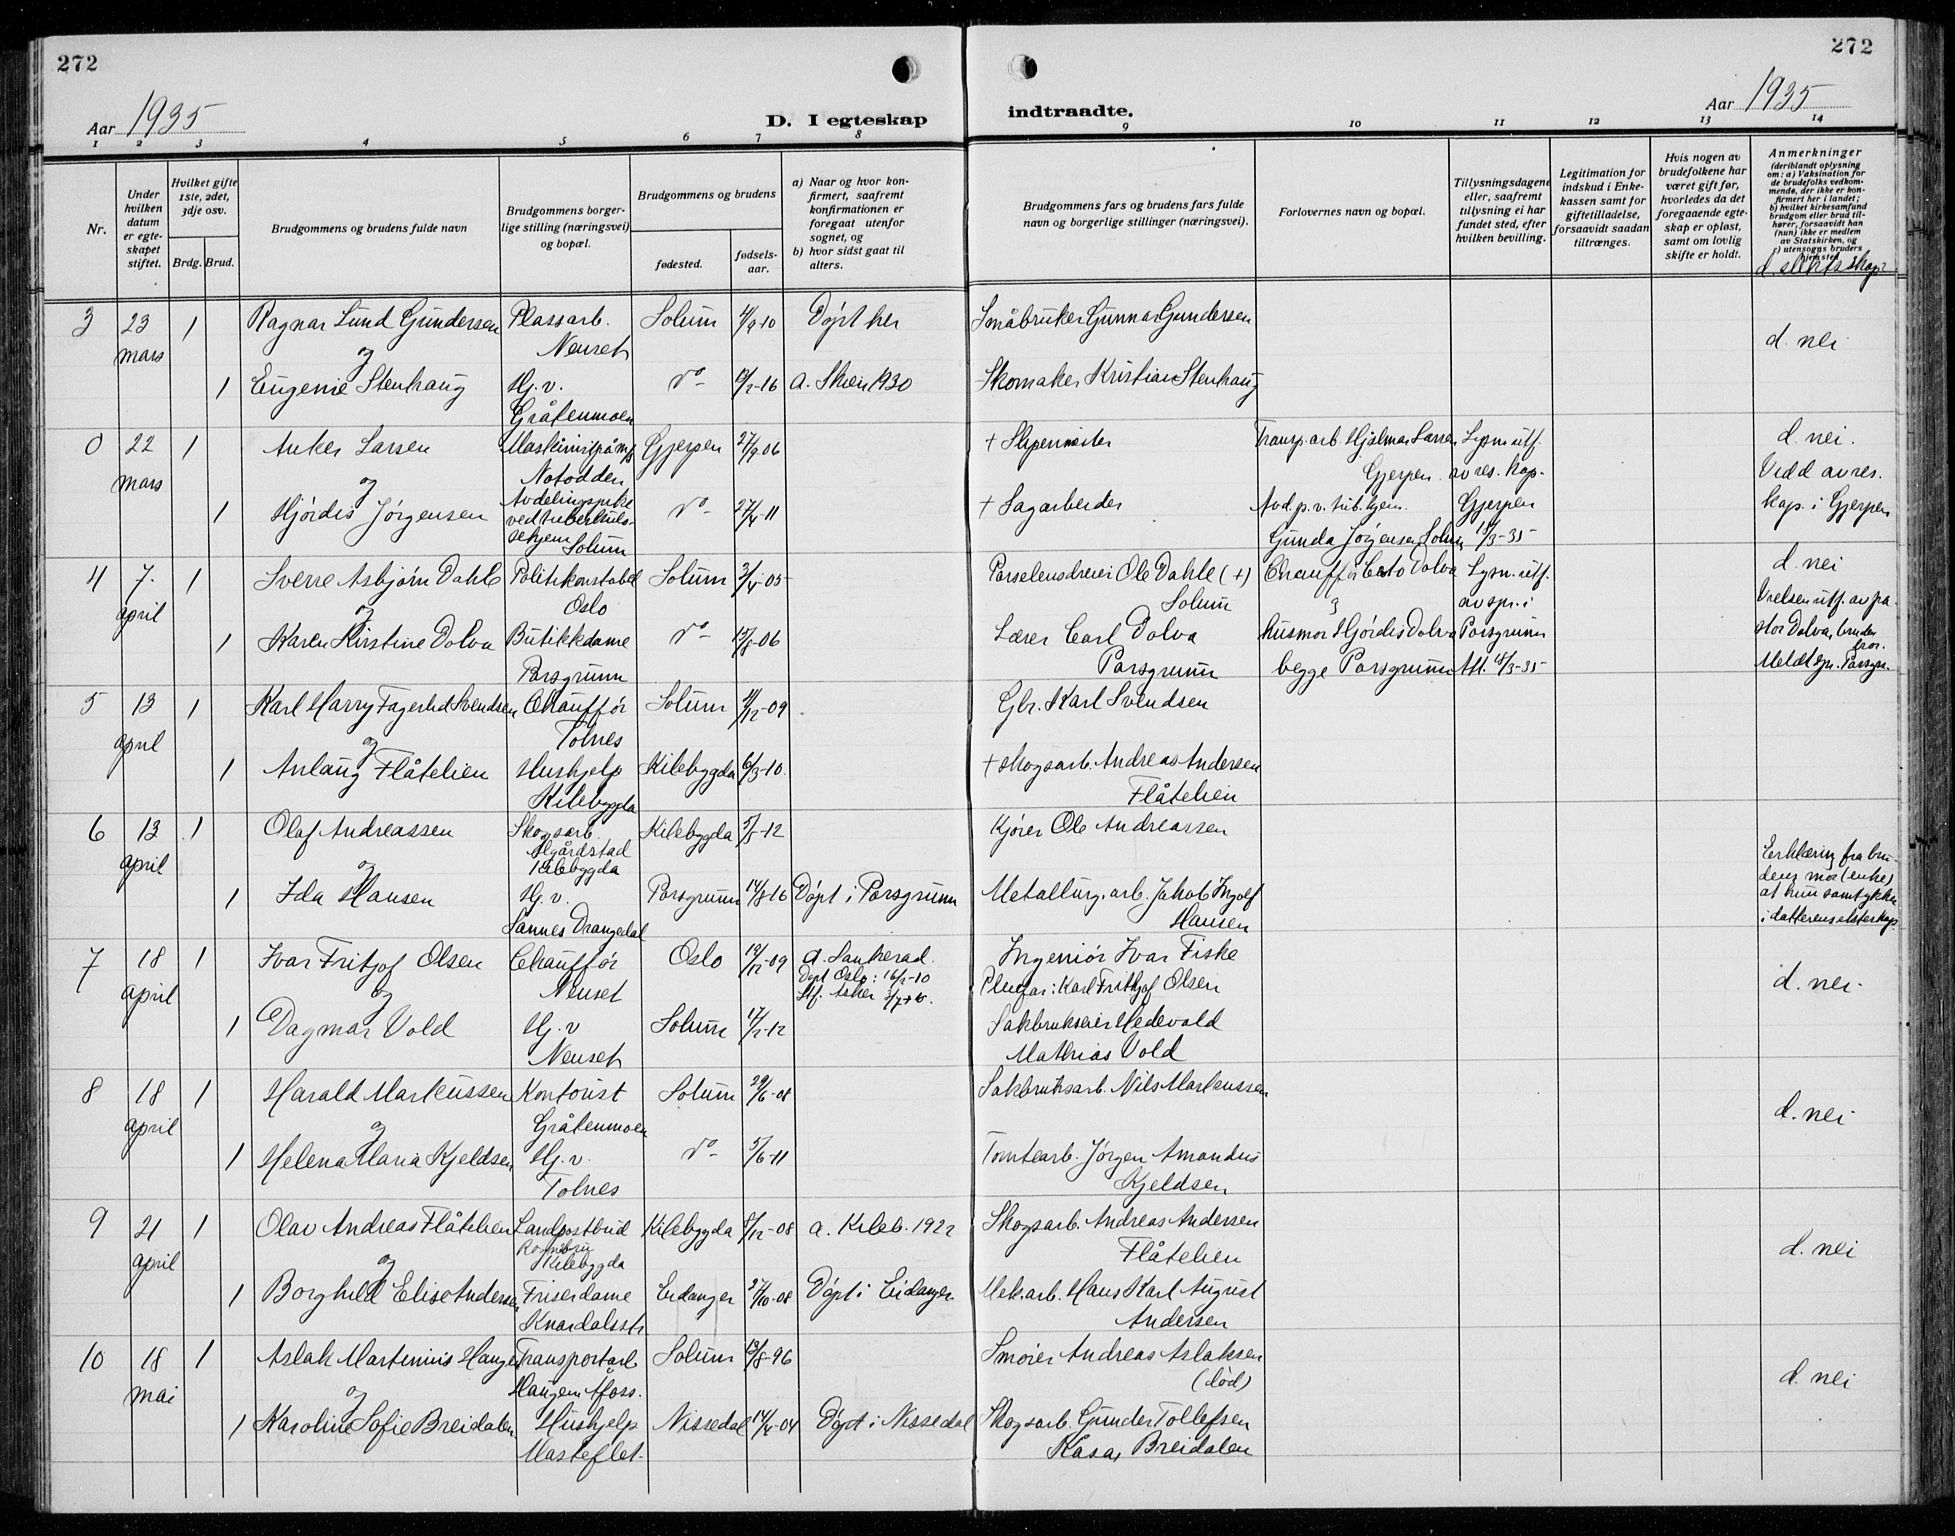 272
272
Aar 1935
D. I egteskap
indtraadte.
Aar 1935
1 2 3 4 5 6 7 8 9 10 11 12 13 14
Nr.
Under hvilken datum er egteskapet stiftet.
Hvilket gifte 1ste, 2det, 3dje osv.
Brdg. Brud.
Brudgommens og brudens fulde navn
Brudgommens borgerlige stilling (næringsvei) og bopæl.
Brudgommens og brudens
fødested.
fødselsaar.
a) Naar og hvor konfirmert, saafremt konfirmationen er foregaat utenfor sognet, og
b) hvor sidst gaat til alters.
Brudgommens fars og brudens fars fulde navn og borgerlige stillinger (næringsvei).
Forlovernes navn og bopæl.
Tillysningsdagene eller, saafremt tillysning ei har fundet sted, efter hvilken bevilling.
Legitimation for indskud i Enkekassen samt for giftetilladelse, forsaavidt saadan tiltrænges.
Hvis nogen av brudefolkene har været gift før, hvorledes da det foregaaende egteskap er opløst, samt om lovlig skifte er holdt.
Anmerkninger
(deriblandt oplysning om: a) Vaksination for de brudefolks vedkommende, der ikke er konfirmert her i landet; b) hvilket kirkesamfund brudgom eller brud tilhører, forsaavidt han (hun) ikke er medlem av Statskirken, og c) utensogns bruders hjemsted.
d. slektskap?
3 23 mars 1 Ragnar Lund Gundersen Plassarb. Nenset Solum 4/9-10 Døpt her Småbruker Gunnar Gundersen
og
1 Eugenie Stenhaug Hj.v. Gråtenmoen do- 12-16 a. Skien 1930 Skomaker Kristian Stenhaug
d. nei
0 22 mars 1 Anker Larsen Maskinist på m/s Notodden Gjerpen 27/9-06 + Skipermester Transp.arb. Hjalmar Larsen Gjerpen Lysn. utf. av res. kap.
og
1 Hjørdis Jørgensen Avdelingspike ved tuberkulosehjem Solum do- 27/4-11 + Sagarbeider Avd.p.v. tub.hjem. Gunda Jørgensen, Solum Gjerpen 18/3-35
d. nei.
Viedd av res. kap. i Gjerpen
4 7. april 1 Sverre Asbjørn Dahle Politikonstabel Oslo Solum 3/4-05 Porselensdreier Ole Dahle (+) Solum Chauffør Cato Dolva Lysn. utf. av spr. i
og
1 Karen Kirstine Dolva Butikkdame Porsgrunn do- 15/8-06 Lærer Carl Dolva Porsgrunn husmor Hjørdis Dolva begge Porsgrunn Porsgrunn Att. 18/3-35
d. nei
Vielsen utf. av pastor Dolva, brudens bror.
Meldt spr. Porsgr.
5 13 april 1 Karl Harry Fagerlid Svendsen Chauffør Tolnes Solum 11/12-09 Gbr. Karl Svendsen
og
1 Anlaug Flåtelien Hushjelp Kilebygda Kilebygda 6/3-10. + skogsarb. Andreas Andersen Flåtelien
6 13 april 1 Olaf Andreassen Skogsarb. Kilebygda Kilebygda 5/5-12 Kjører Ole Andreassen
og
1 Ida Hansen Hj.v. Sannes Drangedal Porsgrunn 14/8-16 Døpt i Porsgrunn Metallurg.arb. Jakob Ingolf Hansen
Erklæring fra brudens mor (enke) at hun samtykker i datterens ekteskap
7 18 april 1 Ivar Fritjof Olsen Chauffør Nenset Oslo 12/12-09 a. Sauherad. Døpt Oslo: 16/1-10 Stf. Asker Ingeniør Ivar Fiske
Pleiefar: Karl Fritjof Olsen
og
1 Dagmar Vold Hj.v Nenset Solum 17/2-12 Sakbrukseier Hedevold
Mathias Vold
d. nei.
8 18 april 1 Harald Markussen Kontorist Gråtenmoen Solum 29/6-08 Sakbruksarb. Nils Markussen
og
1 Helena Maria Kjeldsen Hj.v. Tolnes do- 5/6-11 Tomtearb. Jørgen Amandus Kjeldsen
d. nei
9 21 april 1 Olav Andreas Flåtelien Landpostbud Kilebygda Kilebygda 8/12-08 a. Kileb. 1922 Skogsarb. Andreas Andersen Flåtelien
og
1 Borghild Elise Andersen Friserdame Knardalsstr Eidanger 27/10-08 Døpt i Eidanger Mek.arb. Hans Karl August Andersen
d. nei
10 18 mai 1 Aslak Martinius Haugen Transportarb Haugen Åfoss. Solum 13/8-96 Smører Andreas Aslaksen (død)
og
1 Karoline Sofie Breidalen Hushjelp Masteflet. Nissedal 14/4-04 Døpt i Nissedal Skogsarb. Gunder Tollefsen Kåsa, Breidalen
d. nei